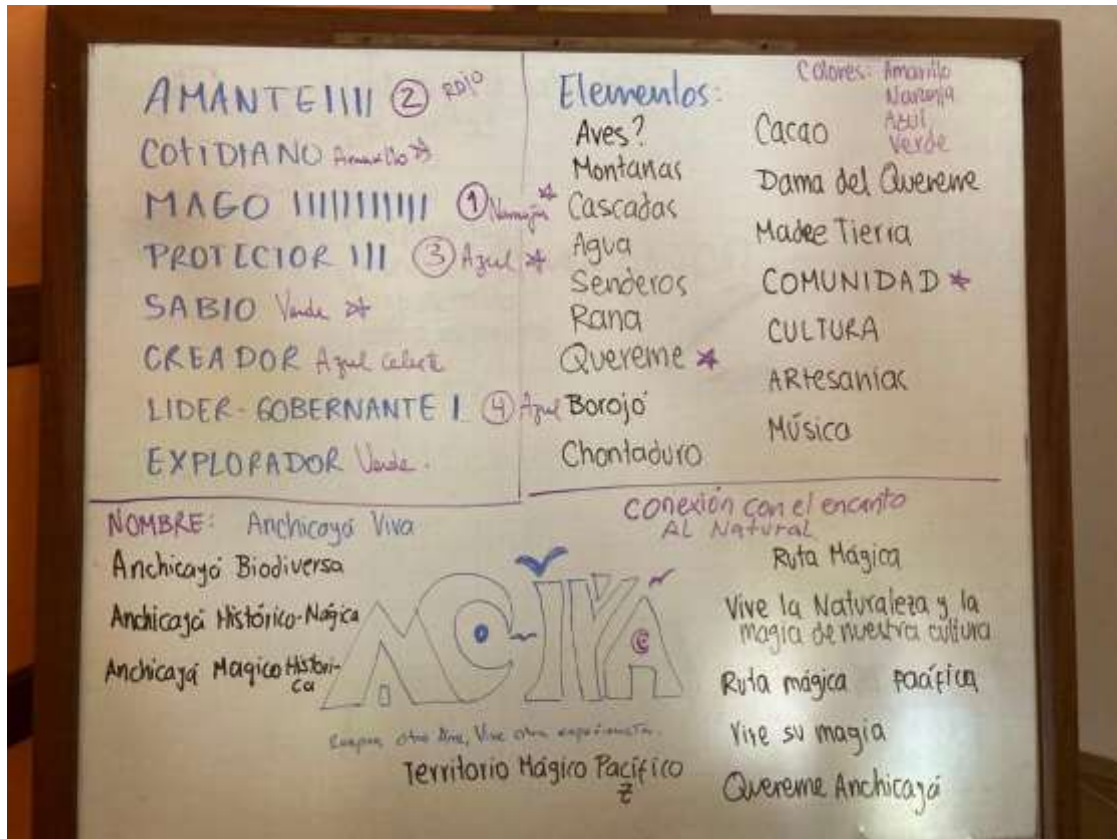 AMANTE IIII 2 ROJO
COTIDIANO Amarillo
MAGO IIIIIIIIIII 1 Naranja
PROTECTOR III 3 Azul
SABIO Verde
CREADOR Azul celeste
LIDER-GOBERNANTE I 4 Azul
EXPLORADOR Verde.
Elementos:
Aves?
Montanas
Cascadas
Agua
Senderos
Rana
Quereme
Borojó
Chontaduro
Colores: Amarillo
Naranja
Azul
Verde
Cacao
Dama del Quereme
Madre Tierra
COMUNIDAD
CULTURA
ARtesanías
Música
NOMBRE: Anchicayá Viva
Anchicayá Biodiversa
Anchicayá Histórico-Mágica
Anchicayá Magico Histori-
ca
otro Aire, Vive otra experiencia.
Territorio Mágico Pacífico
Conexión con el encanto
AL Natural
Ruta Mágica
Vive la Naturaleza y la
magia de nuestra cultura
Ruta mágica Pacífica
Vive su magia
Quereme Anchicayá